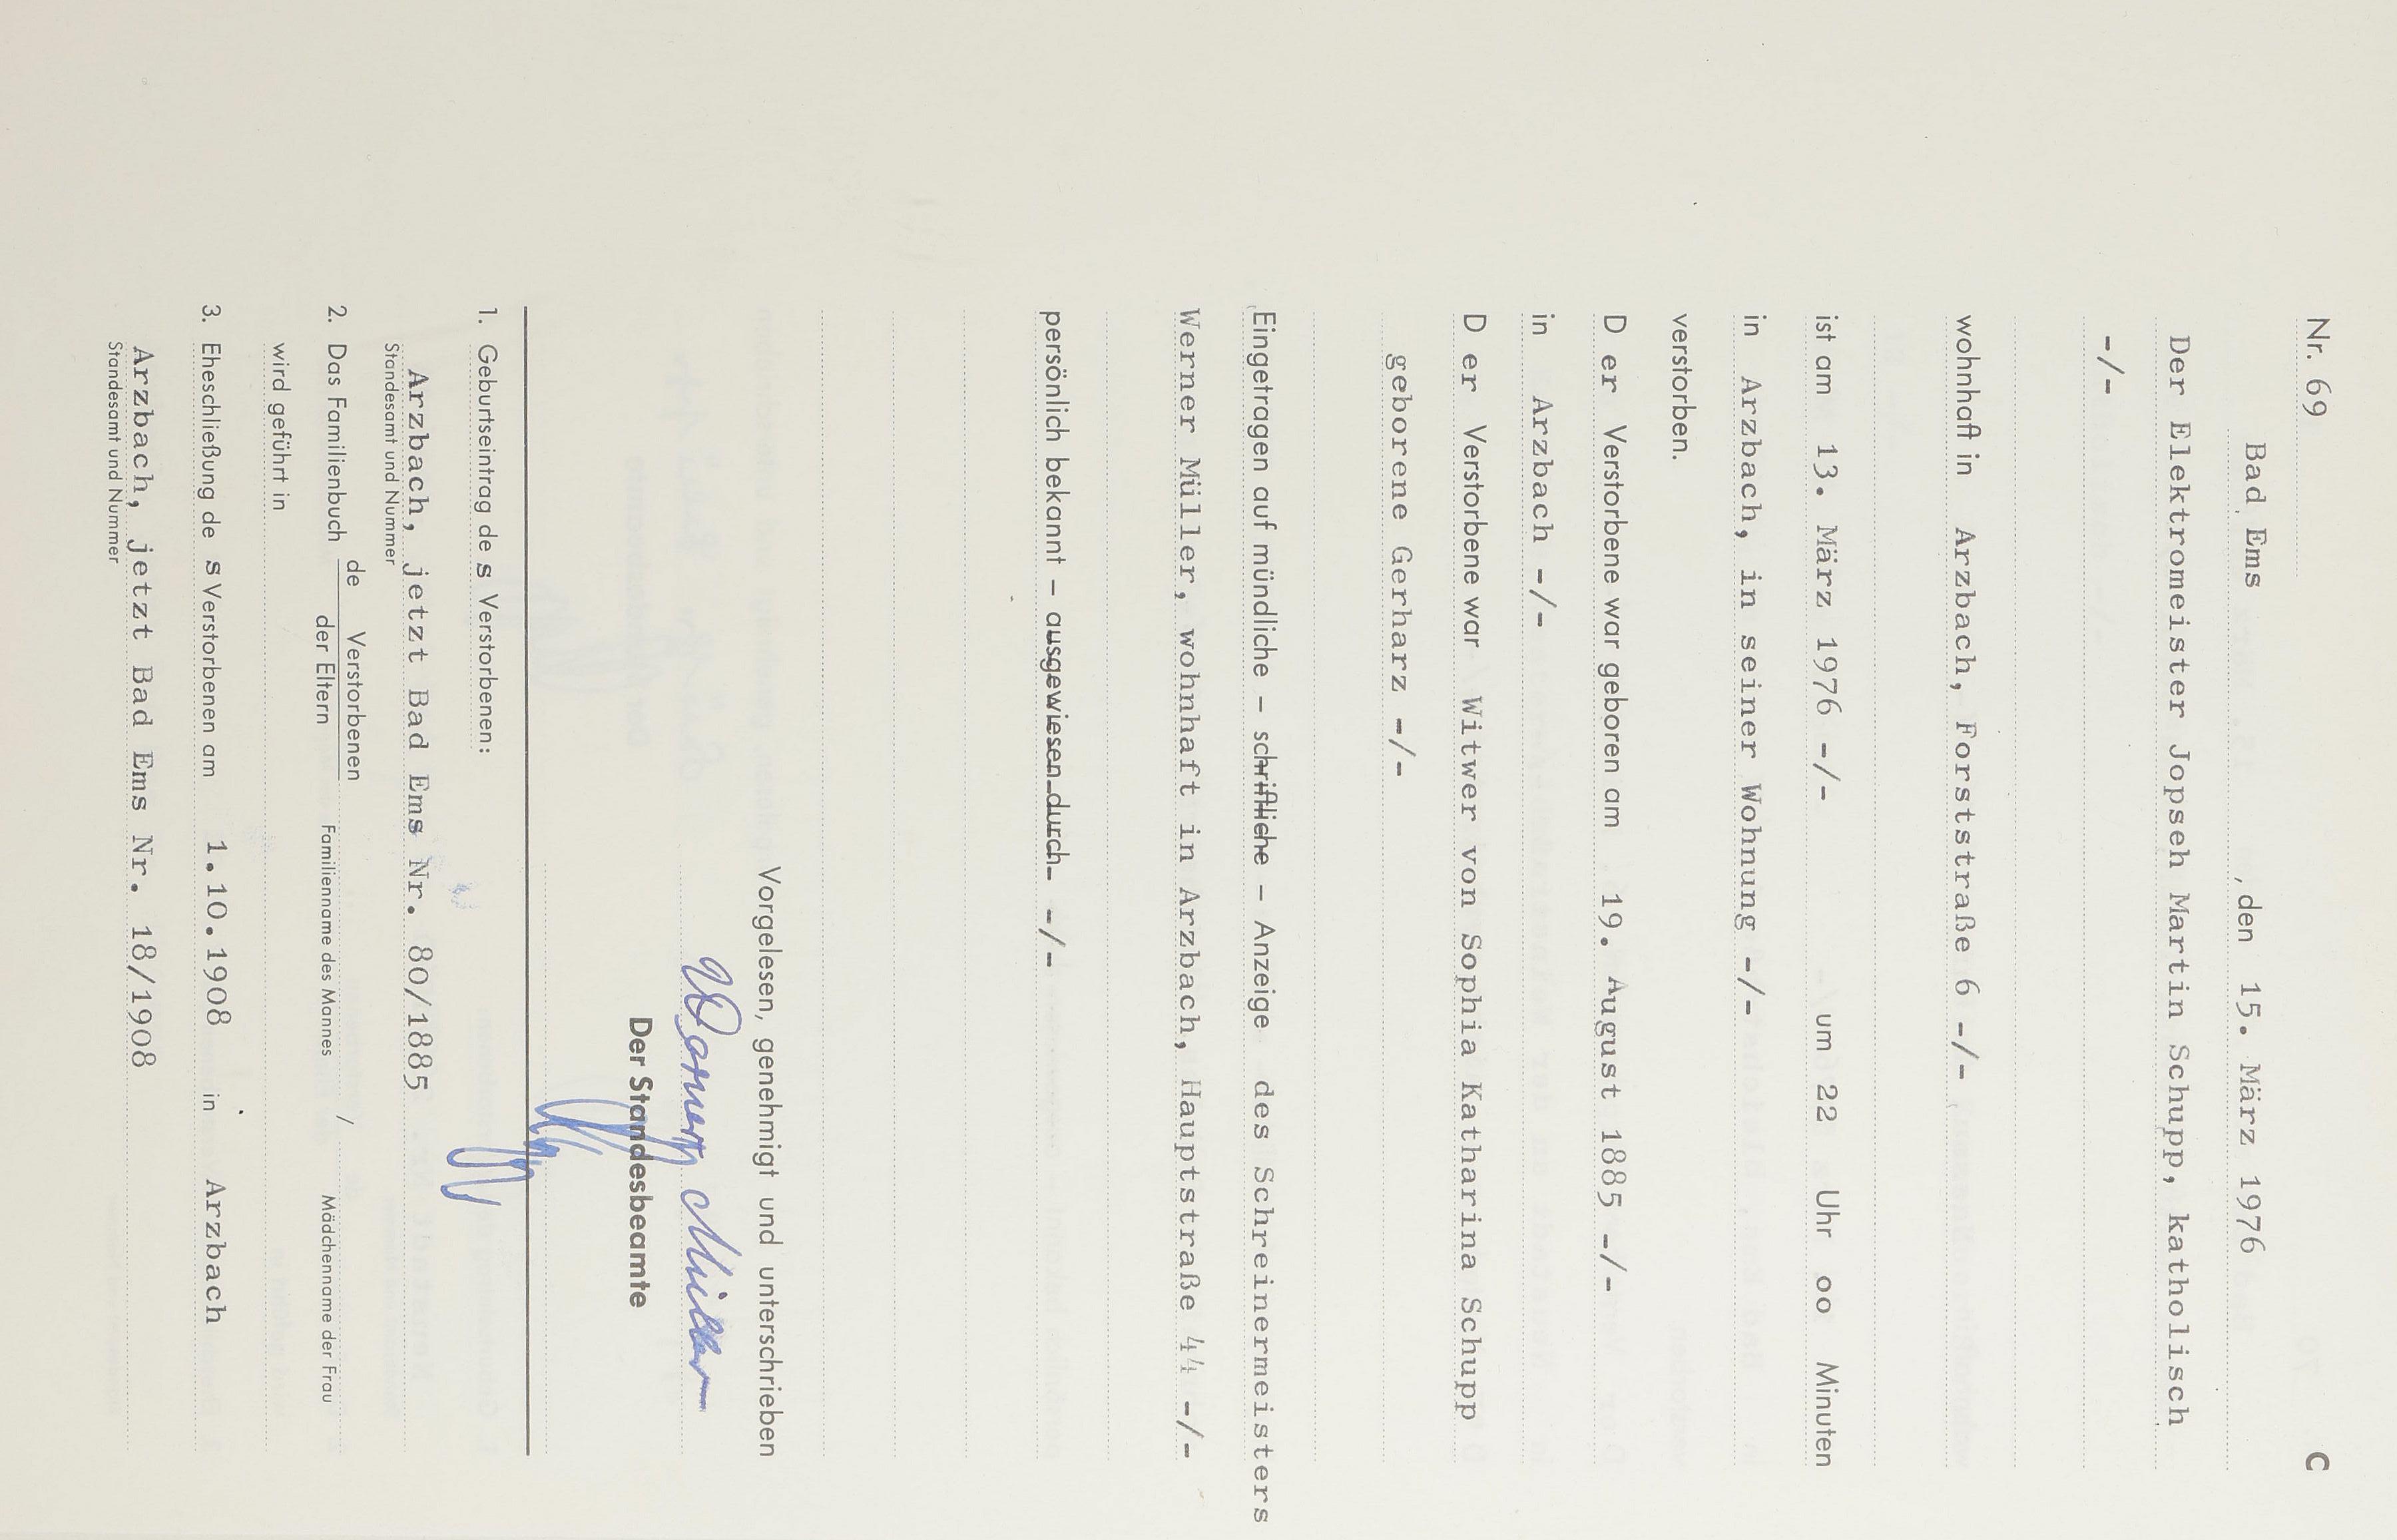 Nr. 69 C
Bad Ems , den 15. März 1976
Der Elektromeister Jopseh Martin Schupp, katholisch
-/-
wohnhaft in Arzbach, Forststraße 6 -/-
ist am 13. März 1976 -/- um 22 Uhr oo Minuten
in Arzbach, in seiner Wohnung -/-
verstorben.
D er Verstorbene war geboren am 19. August 1885 -/-
in Arzbach -/-
D er Verstorbene war Witwer von Sophia Katharina Schupp
geborene Gerharz -/-
Eingetragen auf mündliche – schriftliche – Anzeige des Schreinermeisters
Werner Müller, wohnhaft in Arzbach, Hauptstraße 44 -/-
persönlich bekannt – ausgewiesen durch- -/-
Vorgelesen, genehmigt und unterschrieben
Werner Müller
Der Standesbeamte
1. Geburtseintrag de s Verstorbenen:
Arzbach, jetzt Bad Ems Nr. 80/1885
Standesamt und Nummer
de Verstorbenen
2. Das Familienbuch der Eltern Familienname des Mannes / Mädchenname der Frau
wird geführt in
3. Eheschließung de s Verstorbenen am 1.10.1908 in Arzbach
Arzbach, jetzt Bad Ems Nr. 18/1908
Standesamt und Nummer